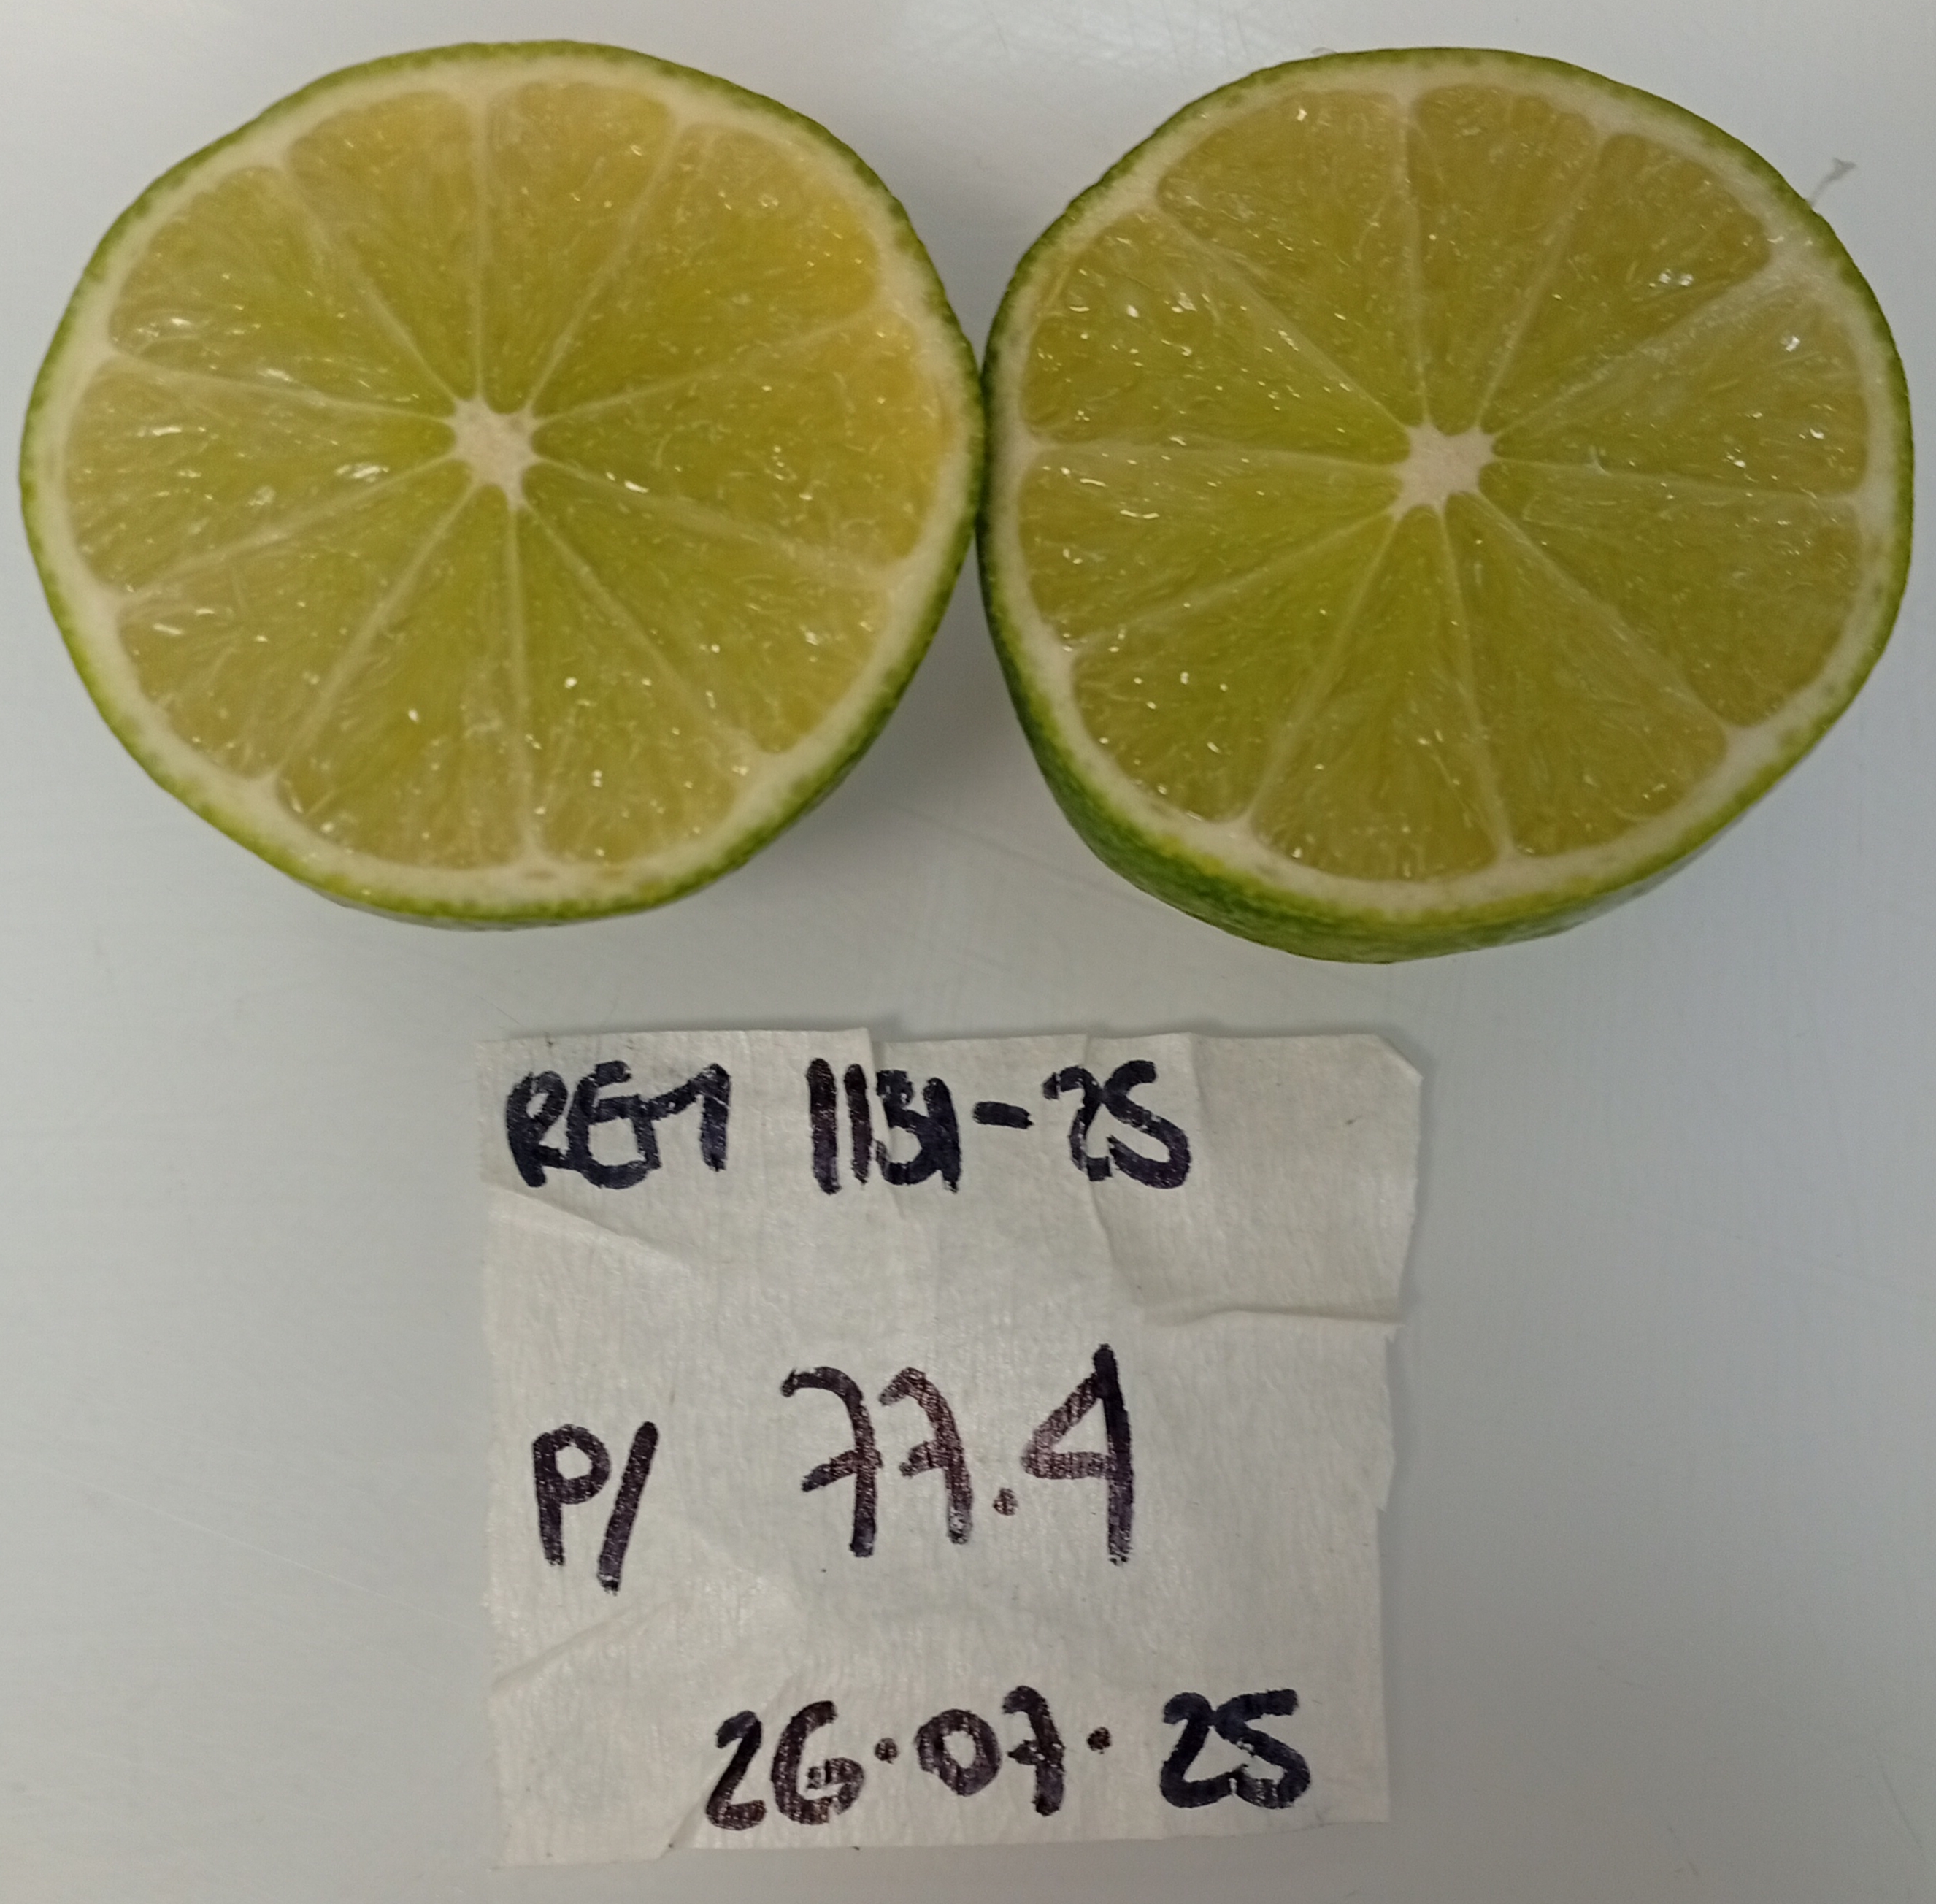 REM 1131-25
P/ 77.4
26.07.25